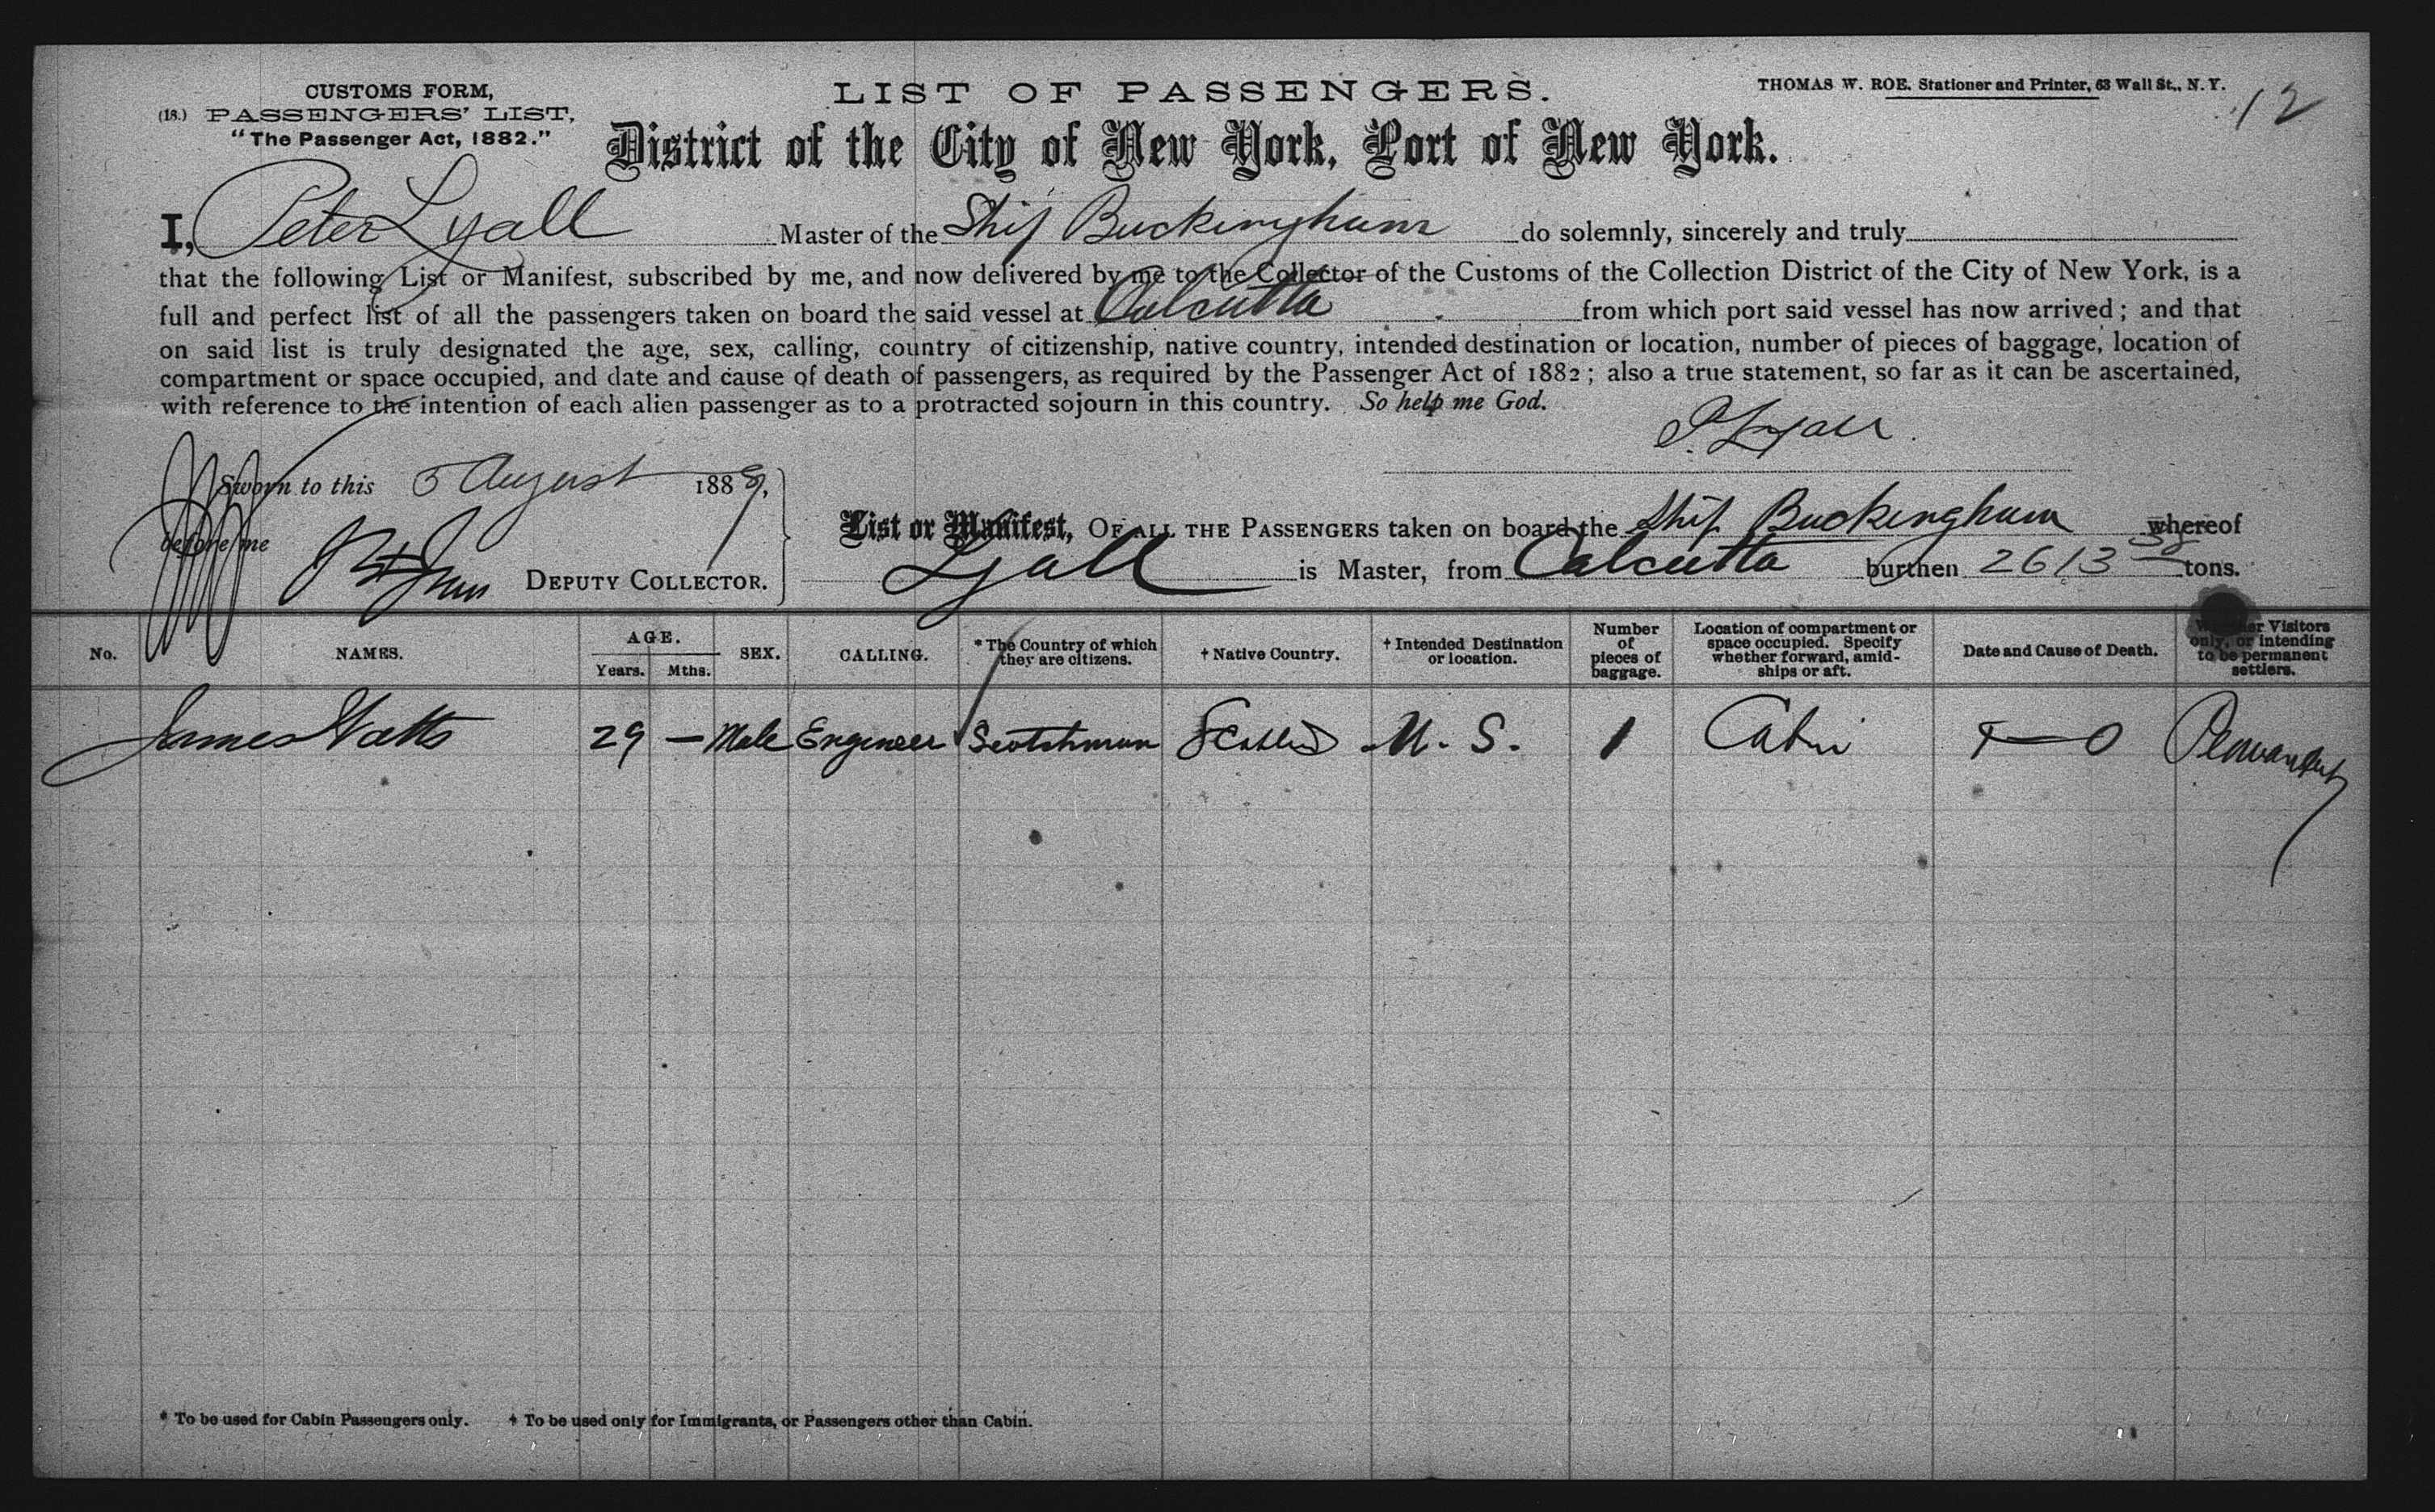 CUSTOMS FORM,
(18.) PASSENGERS' LIST,
"The Passenger Act, 1882."
LIST OF PASSENGERS.
THOMAS W. ROE, Stationer and Printer, 63 Wall St., N. Y.
12
District of the City of New York, Port of New York.
I, Peter Lyall Master of the Ship Buckingham do solemnly, sincerely and truly
that the following List or Manifest, subscribed by me, and now delivered by me to the Collector of the Customs of the Collection District of the City of New York, is a
full and perfect list of all the passengers taken on board the said vessel at Calcutta from which port said vessel has now arrived; and that
on said list is truly designated the age, sex, calling, country of citizenship, native country, intended destination or location, number of pieces of baggage, location of
compartment or space occupied, and date and cause of death of passengers, as required by the Passenger Act of 1882; also a true statement, so far as it can be ascertained,
with reference to the intention of each alien passenger as to a protracted sojourn in this country. So help me God.
P. Lyall.
Sworn to this 5 August 1889,
before me
DEPUTY COLLECTOR.
List or Manifest, OF ALL THE PASSENGERS taken on board the Ship Buckingham whereof
Lyall is Master, from Calcutta burthen 2613 38 tons.
No.
NAMES.
AGE.
Years. Mths.
SEX.
CALLING.
* The Country of which they are citizens.
† Native Country.
† Intended Destination or location.
Number of pieces of baggage.
Location of compartment or space occupied. Specify whether forward, amid-ships or aft.
Date and Cause of Death.
Whether Visitors only, or intending to be permanent settlers.
James Watts 29 — Male Engineer Scotchman Scotland U. S. 1 Cabin Permanent
* To be used for Cabin Passengers only. † To be used only for Immigrants, or Passengers other than Cabin.